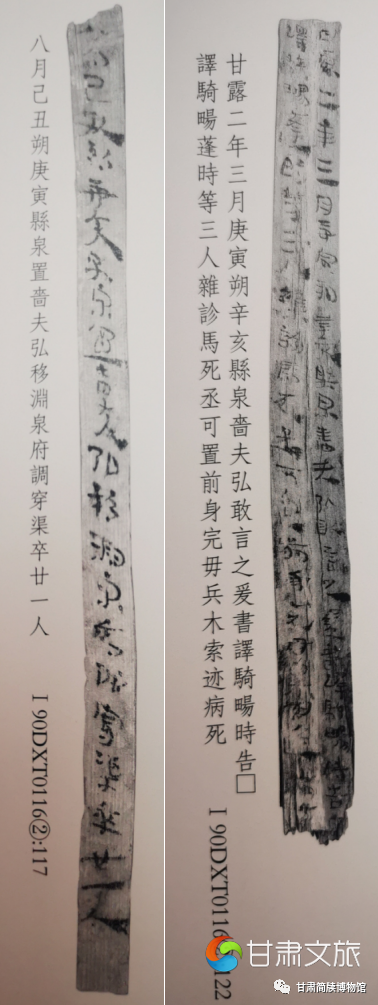 八月己丑朔庚寅縣泉置嗇夫弘移淵泉府調穿渠卒廿一人
I 90DXT0116②:117
甘露二年三月庚寅朔辛亥縣泉嗇夫弘敢言之爰書譯騎暢時告□
譯騎暢蓬時等三人雜診馬死丞可置前身完毋兵木索迹病死
I 90DXT0116
122
甘肃文旅
甘肃简牍博物馆